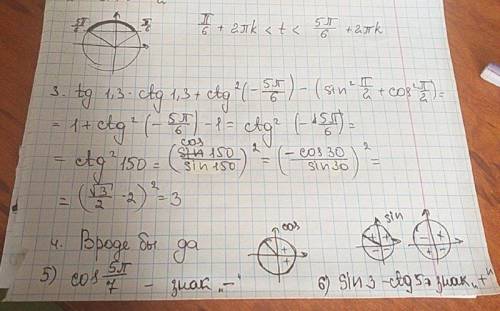 5π/6 π/6 π/6 + 2πk < t < 5π/6 + 2πk
3. tg 1,3 · ctg 1,3 + ctg² (-5π/6) - (sin² π/2 + cos² π/2) =
= 1 + ctg² (-5π/6) - 1 = ctg² (-5π/6) =
= ctg² 150 = (cos 150 / sin 150)² = (-cos 30 / sin 30)² =
= (√3/2 · 2)² = 3
4. Вроде бы да
cos
sin
5) cos 5π/7 - знак "-"
6) sin 3 - ctg 5 > знак "+"